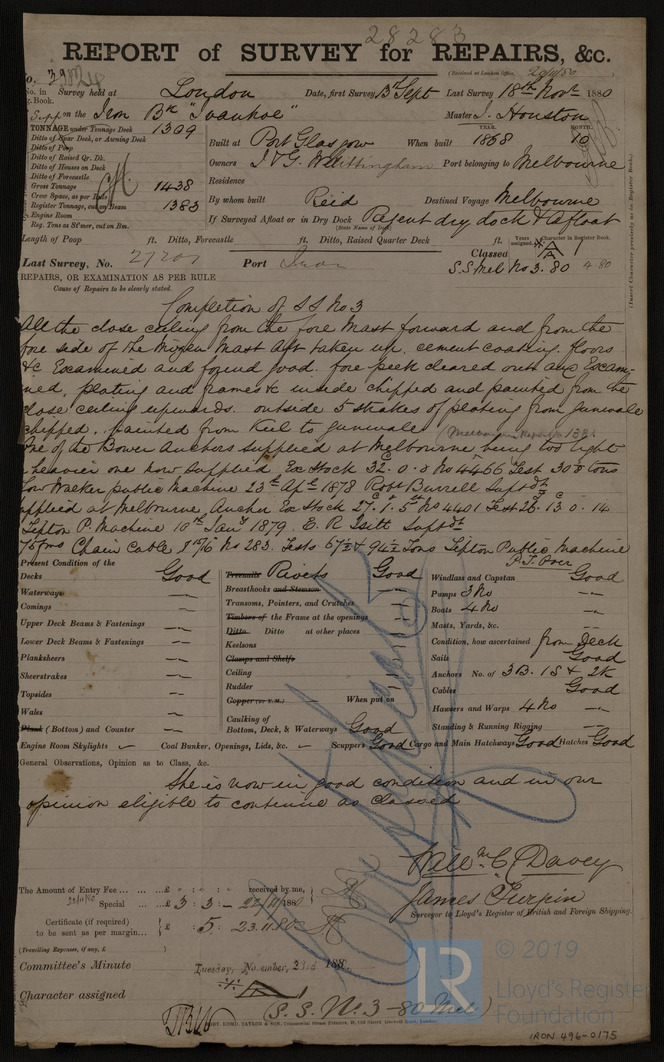 28283
REPORT of SURVEY for REPAIRS, &c.
(Received at London Office,
No. in Survey held at London Date, first Survey 13th Sept Last Survey 18th Novr 1880
Book.
on the Iron Bk "Ivanhoe" Master J. Houston
TONNAGE under Tonnage Deck 1309
Ditto of Spar Deck, or Awning Deck
Ditto of Poop
Ditto of Raised Qr. Dk.
Ditto of Houses on Deck
Ditto of Forecastle
Gross Tonnage 1438
Crew Space, as per Rule
Register Tonnage, cut on Beam 1383
Engine Room
Reg. Tons as St'mer, cut on Bm.
YEAR. MONTH.
Built at Port Glasgow When built 1868 10
Owners J & G. Whittingham Port belonging to Melbourne
Residence
By whom built Reid Destined Voyage Melbourne
If Surveyed Afloat or in Dry Dock Patent dry dock & afloat
(State Name of Dock)
Length of Poop ft. Ditto, Forecastle ft. Ditto, Raised Quarter Deck ft.
Years assigned. Character in Register Book.
Classed A 1
S.S. Mel No 3. 80 4-80
Last Survey, No. 27201 Port Iron
REPAIRS, OR EXAMINATION AS PER RULE
Cause of Repairs to be clearly stated.
(Insert Character precisely as in Register Book)
Completion of SS No 3
All the close ceiling from the fore mast forward and from the
fore side of the Mizen Mast aft taken up. cement coating. floors
&c Examined and found good. fore peek cleared out and Exami-
ned, plating and frames &c inside chipped and painted from the
close ceiling upwards. outside 5 strakes of plating from gunwale
chipped. painted from Keel to gunwale
One of the Bower Anchors supplied at Melbourne being too light
a heavier one now supplied. Ex Stock 32. 0. 0 No 4466 Test 30 tons
Low Walker public Machine 23rd Apl 1878 Robt Burrell Suptdt
supplied at Melbourne Anchor Ex Stock 27. 1. 5 No 4401 Test 26. 13. 0. 14
Tipton P. Machine 10th Jany 1879. E. R Suptdt
75 fms Chain Cable 1 11/16 No 283. Tests 67 & 94 Tons Tipton Public Machine
Present Condition of the
Decks Good
Waterways
Comings
Upper Deck Beams & Fastenings
Lower Deck Beams & Fastenings
Planksheers
Sheerstrakes
Topsides
Wales
Plank (Bottom) and Counter
Engine Room Skylights Coal Bunker, Openings, Lids, &c. Scuppers Good Cargo and Main Hatchways Good Hatches Good
Treenails Rivets Good
Breasthooks and Stemson
Transoms, Pointers, and Crutches
Timbers of the Frame at the openings
Ditto Ditto at other places
Keelsons
Clamps and Shelfs
Ceiling
Rudder
Copper When put on
Caulking of
Bottom, Deck, & Waterways Good
Windlass and Capstan Good
Pumps 3 No
Boats 4 No
Masts, Yards, &c.
Condition, how ascertained from Deck
Sails Good
Anchors No. of 3B. 1S & 2K
Cables Good
Hawsers and Warps 4 No
Standing & Running Rigging
General Observations, Opinion as to Class, &c.
She is now in good condition and in our
opinion eligible to continue as classed
Willm C. Davey
James Turpin
Surveyor to Lloyd's Register of British and Foreign Shipping.
The Amount of Entry Fee £ : : received by me,
Special £ 3 : 3 : - 22/11/1880
Certificate (if required)
to be sent as per margin £ : 5 : 23.11.80
(Travelling Expenses, if any, £ )
Committee's Minute Tuesday, November, 23rd 188
Character assigned A
(S.S. No 3 - 80 Mel)
LR
© 2019
Lloyd's Register
Foundation
IRON 496-0175